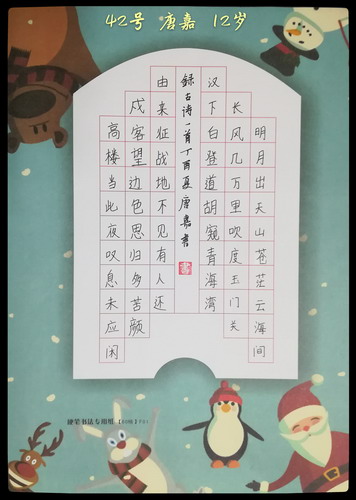 42号 唐嘉 12岁
明月出天山苍茫云海间
长风几万里吹度玉门关
汉下白登道胡窥青海湾
由来征战地不见有人还
戍客望边色思归多苦颜
高楼当此夜叹息未应闲
録古诗一首丁酉夏唐嘉書
硬笔书法专用纸